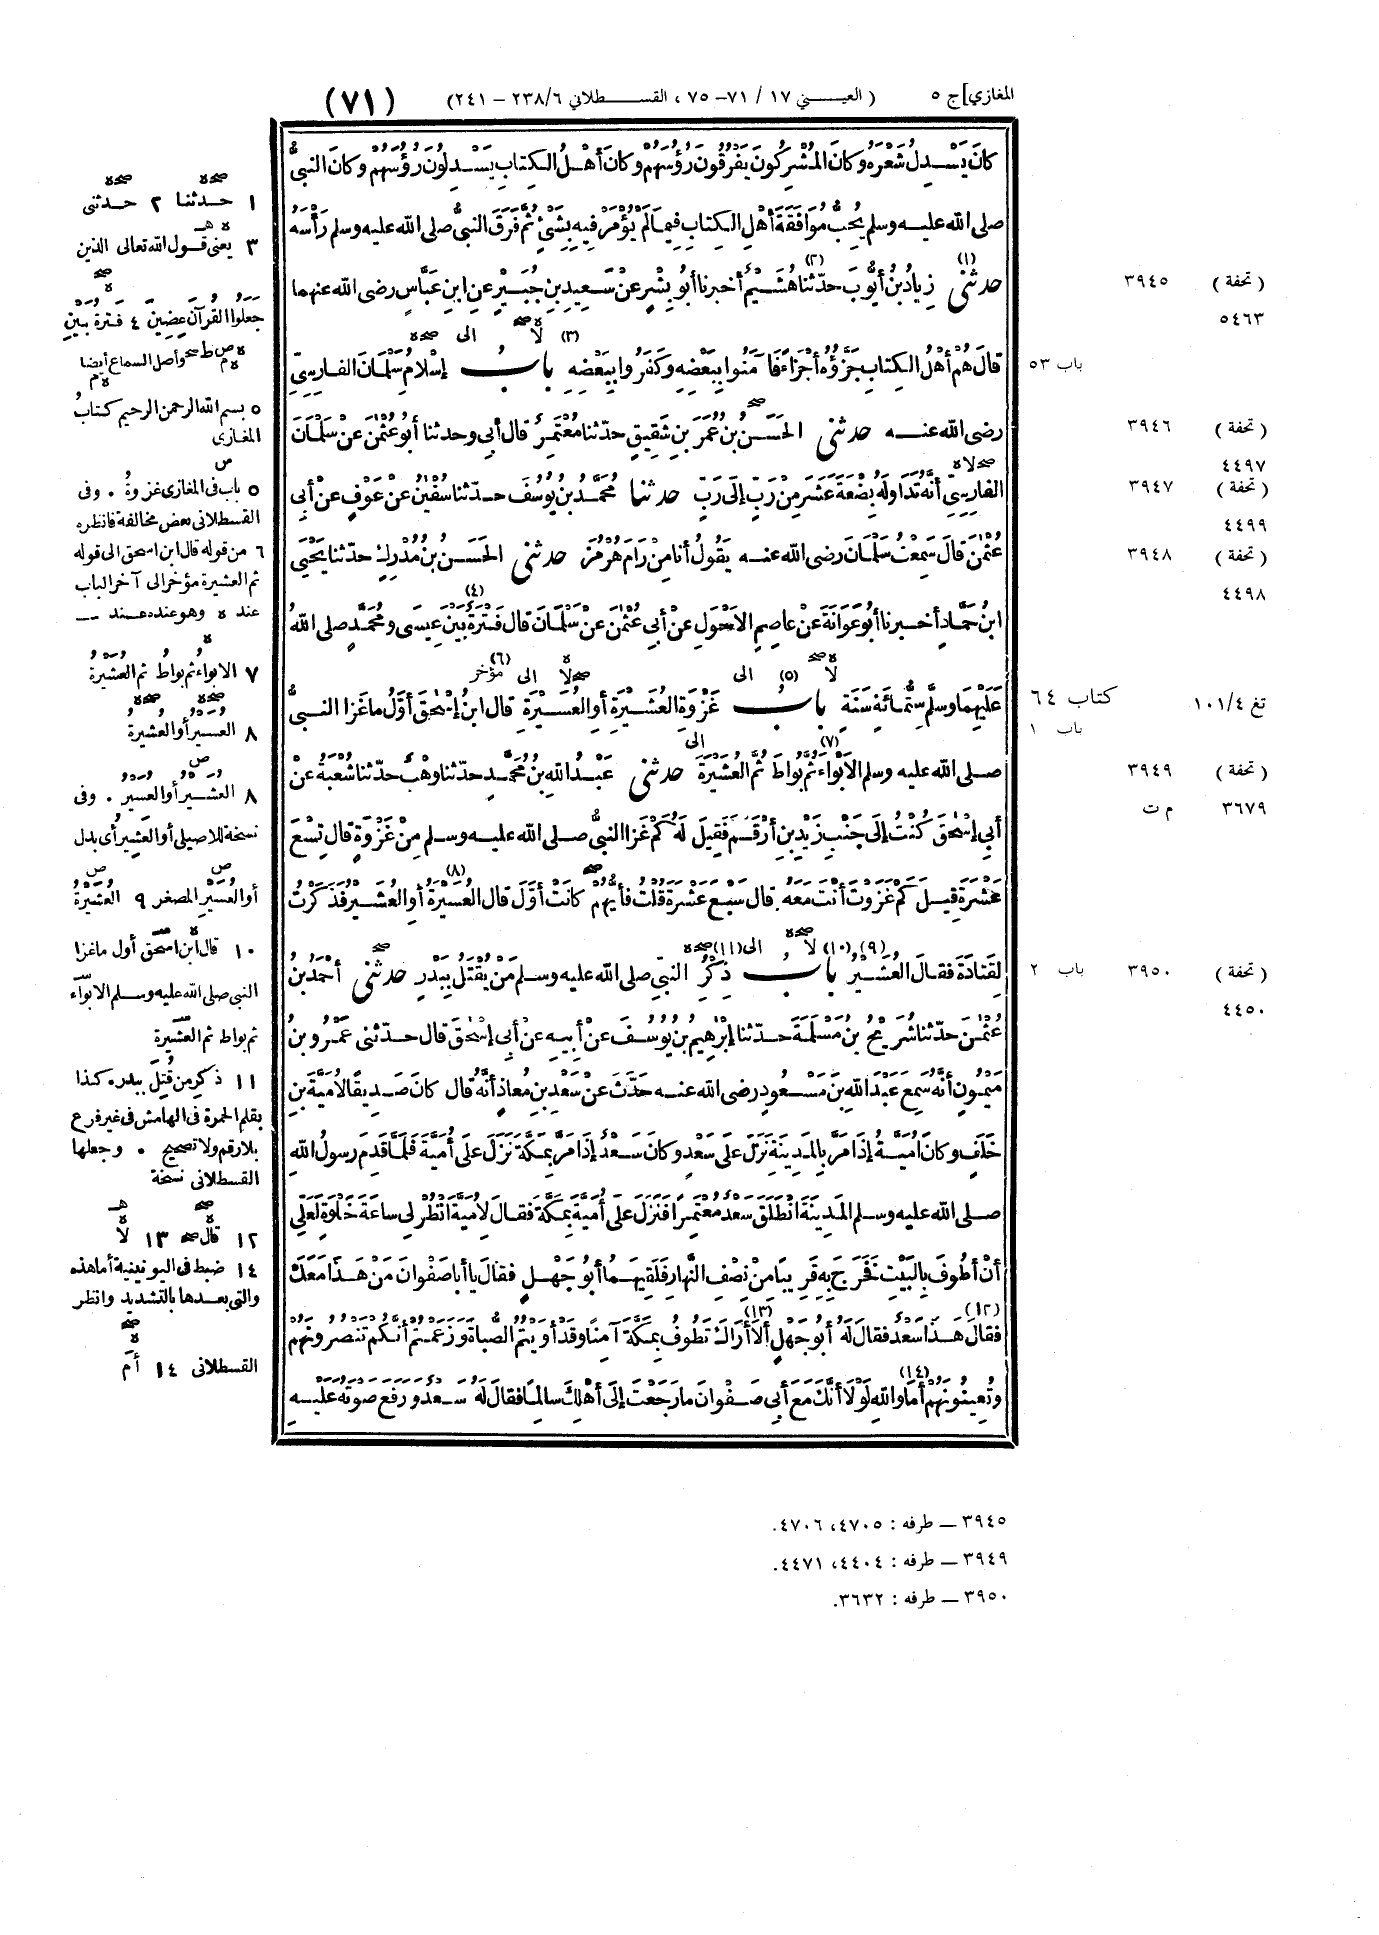 المغازي] ج ٥
( العيـــني ١٧ / ٧١- ٧٥ ، القسـطلاني ٢٣٨/٦ - ٢٤١)
(٧١)
كانَ يَسْدِلُ شَعْرَهُ وكانَ المُشْرِكُونَ يَفْرُقُونَ رُؤُسَهُمْ وكانَ أهْلُ الكِتابِ يَسْدِلُونَ رُؤُسَهُمْ وكانَ النبيُّ
صلى الله عليه وسلم يُحِبُّ مُوافَقَةَ أهْلِ الكِتابِ فِيما لَمْ يُؤْمَرْ فِيهِ بِشَيْءٍ ثُمَّ فَرَقَ النبيُّ صلى الله عليه وسلم رَأْسَهُ
(١) حدثني زِيادُ بنُ أيُّوبَ (٢) حدّثنا هُشَيْمٌ أخبرنا أبُو بِشْرٍ عنْ سَعِيدِ بنِ جُبَيْرٍ عنِ ابنِ عَبَّاسٍ رضى الله عنهما
قالَ هُمْ أهْلُ الكِتابِ جَزَّؤُهُ أجْزاءً فَآمَنُوا بِبَعْضِهِ وكَفَرُوا بِبَعْضِهِ (٣) بابُ إسْلامُ سَلْمانَ الفارِسِيِّ
رضى الله عنه حدثني الحَسَنُ بنُ عُمَرَ بنِ شَقِيقٍ حدّثنا مُعْتَمِرٌ قالَ أبي وحدثنا أبُو عُثْمٰنَ عنْ سَلْمانَ
الفارِسِيِّ أنَّهُ تَداوَلَهُ بِضْعَةَ عَشَرَ مِنْ رَبٍّ إلَى رَبٍّ حدثنا مُحَمَّدُ بنُ يُوسُفَ حدّثنا سُفْيٰنُ عنْ عَوْفٍ عنْ أبي
عُثْمٰنَ قالَ سَمِعْتُ سَلْمانَ رضى الله عنه يَقُولُ أنا مِنْ رَامَ هُرْمُزَ حدثني الحَسَنُ بنُ مُدْرِكٍ حدّثنا يَحْيَى
ابنُ حَمَّادٍ أخبرنا أبُو عَوانَةَ عنْ عاصِمِ الأحْوَلِ عنْ أبي عُثْمٰنَ عنْ سَلْمانَ قال (٤) فَتْرَةٌ بَيْنَ عِيسَى ومُحَمَّدٍ صلى اللهُ
عَلَيْهِما وسلَّمَ سِتُّمائَةِ سَنَةٍ (٥) بابُ غَزْوَةِ العُشَيْرَةِ أوِ العُسَيْرَةِ (٦) قال ابنُ إسْحٰقَ أوَّلُ ما غَزا النبيُّ
صلى الله عليه وسلم الأبْواءَ (٧) ثُمَّ بُواطَ ثُمَّ العُشَيْرَةَ حدثني عَبْدُ اللهِ بنُ مُحَمَّدٍ حدّثنا وهْبٌ حدّثنا شُعْبَةُ عنْ
أبي إسْحٰقَ كُنْتُ إلَى جَنْبِ زَيْدِ بنِ أرْقَمَ فَقِيلَ لَهُ كَمْ غَزا النبيُّ صلى الله عليه وسلم مِنْ غَزْوَةٍ قال تِسْعَ
عَشْرَةَ قِيلَ كَمْ غَزَوْتَ أنْتَ مَعَهُ قال سَبْعَ عَشْرَةَ قُلْتُ فأيُّهُمْ كانَتْ أوَّلَ قال العُسَيْرَةُ (٨) أوِ العُشَيْرُ فَذَكَرْتُ
لِقَتادَةَ فقال العُشَيْرُ (٩) (١٠) بابُ ذِكْرُ (١١) النبيِّ صلى الله عليه وسلم مَنْ يُقْتَلُ بِبَدْرٍ حدثني أحْمَدُ بنُ
عُثْمٰنَ حدّثنا شُرَيْحُ بنُ مَسْلَمَةَ حدّثنا إبْرٰهِيمُ بنُ يُوسُفَ عنْ أبِيهِ عنْ أبي إسْحٰقَ قال حدّثني عَمْرُو بنُ
مَيْمُونٍ أنَّهُ سَمِعَ عَبْدَ اللهِ بنَ مَسْعُودٍ رضى الله عنه حَدَّثَ عنْ سَعْدِ بنِ مُعاذٍ أنَّهُ قال كانَ صَدِيقًا لأُمَيَّةَ بنِ
خَلَفٍ وكانَ أُمَيَّةُ إذَا مَرَّ بِالمَدِينَةِ نَزَلَ علَى سَعْدٍ وكانَ سَعْدٌ إذَا مَرَّ بِمَكَّةَ نَزَلَ علَى أُمَيَّةَ فَلَمَّا قَدِمَ رسولُ اللهِ
صلى الله عليه وسلم المَدِينَةَ انْطَلَقَ سَعْدٌ مُعْتَمِرًا فَنَزَلَ علَى أُمَيَّةَ بِمَكَّةَ فقال لأُمَيَّةَ انْظُرْ لِي ساعَةَ خَلْوَةٍ لَعَلِّي
أنْ أطُوفَ بِالبَيْتِ فَخَرَجَ بِهِ قَرِيبًا مِنْ نِصْفِ النَّهارِ فَلَقِيَهُما أبُو جَهْلٍ فقال يا أبا صَفْوانَ مَنْ هَذَا مَعَكَ
فقال (١٢) هَذَا سَعْدٌ فقال لَهُ أبُو جَهْلٍ ألاَ (١٣) أراكَ تَطُوفُ بِمَكَّةَ آمِنًا وقَدْ أوَيْتُمُ الصُّباةَ وزَعَمْتُمْ أنَّكُمْ تَنْصُرُونَهُمْ
وتُعِينُونَهُمْ (١٤) أما واللهِ لَوْلاَ أنَّكَ مَعَ أبي صَفْوانَ ما رَجَعْتَ إلَى أهْلِكَ سالِمًا فقال لَهُ سَعْدٌ ورَفَعَ صَوْتَهُ عَلَيْهِ
١ حدثنا ٢ حدثنى
٣ يعنى قول الله تعالى الذين
جعلوا القرآن عضين ٤ فترة بين
وأصل السماع أيضا
٥ بسم الله الرحمن الرحيم كتاب
المغازى
٥ باب فى المغازى غزوة . وفى
القسطلانى بعض مخالفة فانظره
٦ من قوله قال ابن اسحق الى قوله
ثم العشيرة مؤخر الى آخر الباب
عند ه وهو عنده عند
٧ الابواء ثم بواط ثم العشيرة
٨ العسير أو العشيرة
٨ العشير أو العسير . وفى
نسخة للاصيلى أو العشير أى بدل
أو العسير المصغر ٩ العشيرة
١٠ قال ابن اسحق أول ما غزا
النبى صلى الله عليه وسلم الابواء
ثم بواط ثم العشيرة
١١ ذكر من قتل ببدر . كذا
بقلم الحمرة فى الهامش فى غير فرع
بلا رقم ولا تصحيح . وجعلها
القسطلانى نسخة
١٢ قال ١٣ لا
١٤ ضبط فى اليونينية أما هذه
والتى بعدها بالتشديد وانظر
القسطلانى ١٤ أم
( تحفة ) ٣٩٤٥
٥٤٦٣
باب ٥٣
( تحفة ) ٣٩٤٦
٤٤٩٧
( تحفة ) ٣٩٤٧
٤٤٩٩
( تحفة ) ٣٩٤٨
٤٤٩٨
تغ ١٠١/٤ كتاب ٦٤
باب ١
( تحفة ) ٣٩٤٩
٣٦٧٩ م ت
( تحفة ) ٣٩٥٠ باب ٢
٤٤٥٠
٣٩٤٥ — طرفه : ٤٧٠٥، ٤٧٠٦.
٣٩٤٩ — طرفه : ٤٤٠٤، ٤٤٧١.
٣٩٥٠ — طرفه : ٣٦٣٢.